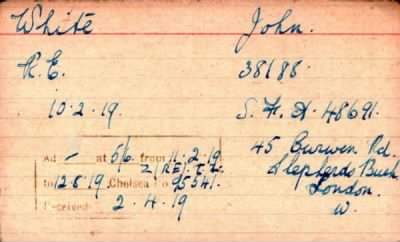 White John.
R.E. 38188.
10.2.19. S.H.A. 48691.
45 Burwen Rd.
Ad - at 5/6 from 11.2.19
Shepherds Bush
to 12.8.19 Chelsea No 95541.
London.
Received 2.4.19
W.